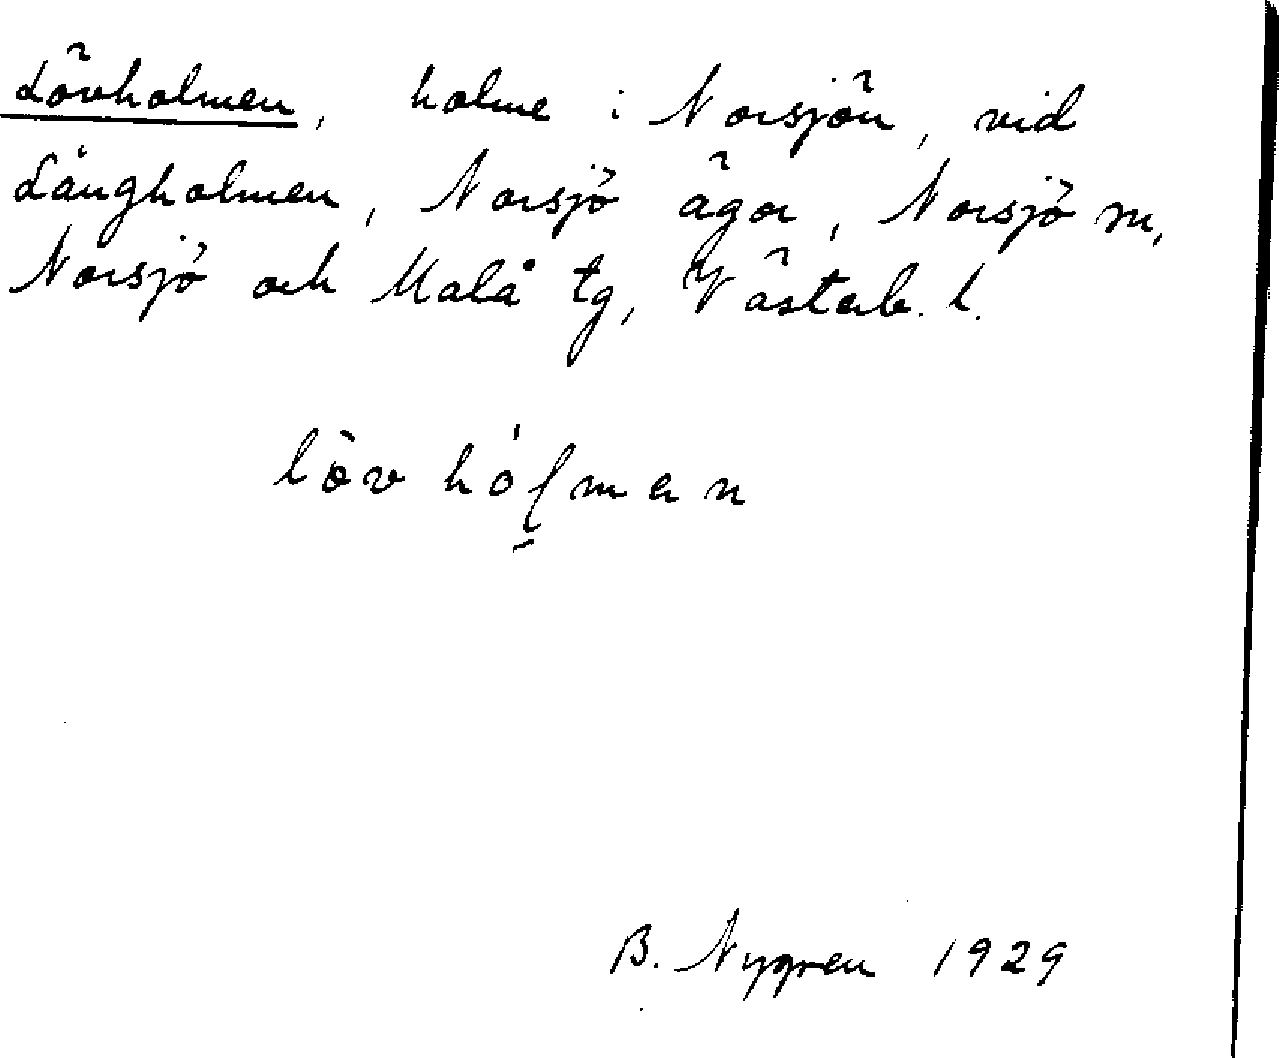 Lövholmen, holme i Norsjön, vid
Långholmen, Norsjö ägor, Norsjö sn,
Norsjö och Malå tg, Västerb. l.
löv hó̱lman
B. Nygren 1929